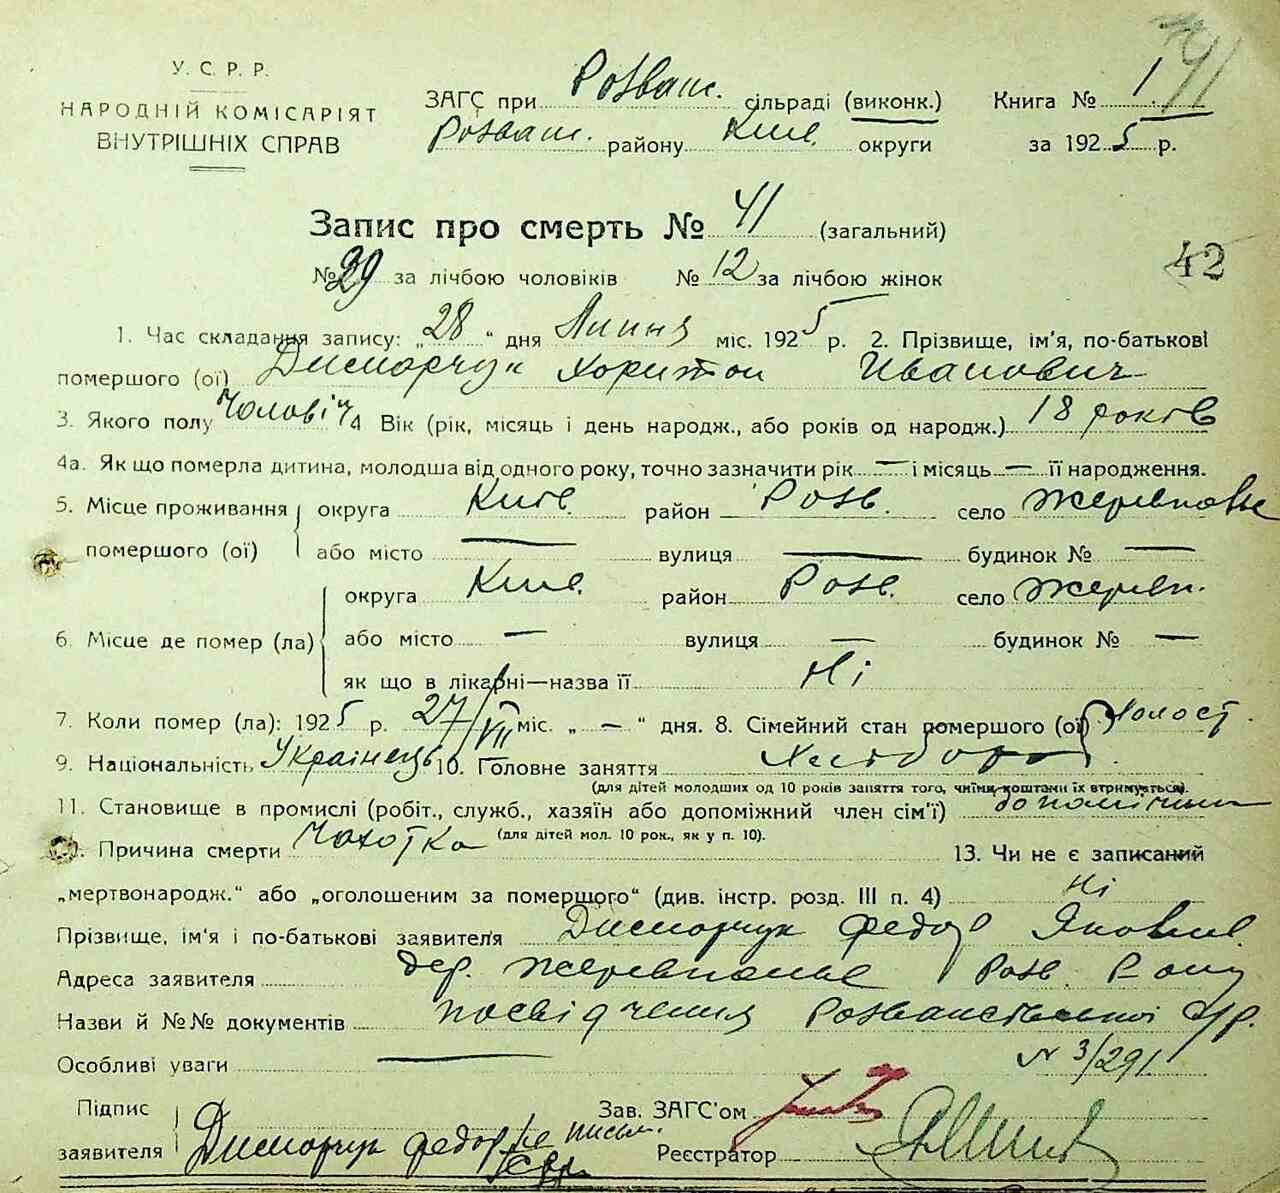 У. С. Р. Р.
НАРОДНІЙ КОМІСАРІЯТ
ВНУТРІШНІХ СПРАВ
ЗАГС при Розваж. сільраді (виконк.)
Розваж. району Київ. округи
Книга № 1
за 1925 р.
41
Запис про смерть № 41 (загальний)
№ 29 за лічбою чоловіків № 12 за лічбою жінок
42
1. Час складання запису: „28“ дня Липня міс. 1925 р. 2. Прізвище, ім'я, по-батькові
помершого (ої) Харитон Иванович
3. Якого полу Чоловіч 4 Вік (рік, місяць і день народж., або років од народж.) 18 років
4а. Як що померла дитина, молодша від одного року, точно зазначити рік — і місяць — її народження.
5. Місце проживання округа Київ. район Розв. село
помершого (ої) або місто — вулиця — будинок № —
округа Київ. район Розв. село Жеревп.
6. Місце де помер (ла) або місто — вулиця — будинок № —
як що в лікарні—назва її Ні
7. Коли помер (ла): 1925 р. 27/VII міс. „ — “ дня. 8. Сімейний стан помершого (ої) Холост.
9. Національність Українець 10. Головне заняття Хлібороб
(для дітей молодших од 10 років заняття того, чиїми коштами їх втримується).
11. Становище в промислі (робіт., служб., хазяїн або допоміжний член сім'ї)
(для дітей мол. 10 рок., як у п. 10).
Причина смерти Чахотка 13. Чи не є записаний
„мертвонародж.“ або „оголошеним за помершого“ (див. інстр. розд. III п. 4) Ні
Прізвище, ім'я і по-батькові заявителя Федор Яковл.
Адреса заявителя дер. Розв. Рону
Назви й №№ документів посвідчення
№ 3/291
Особливі уваги —
Підпис
заявителя Федор
Зав. ЗАГС'ом
Реєстратор